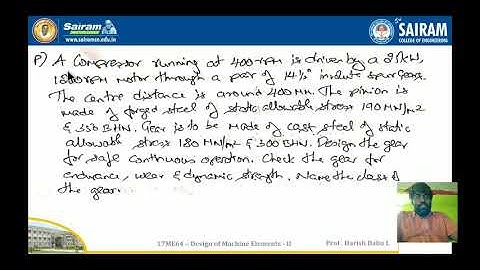 Sairam
www.sairamce.edu.in
SAIRAM
COLLEGE OF ENGINEERING
P) A Compressor running at 400 rpm is driven by a
motor through a pair of 14½° involute spur gears.
The centre distance is around 400 MM. The pinion is
made of forged steel of static allowable stress 190 MN/m2
& 350 BHN. Gear is to be made of cast steel of static
allowable stress 180 MN/m2 & 300 BHN. Design the gear
for safe continuous operation. Check the gear for
endurance, wear & dynamic strength. Name the class of
the gear.
17ME64 – Design of Machine Elements - II
Prof. Harish Babu L